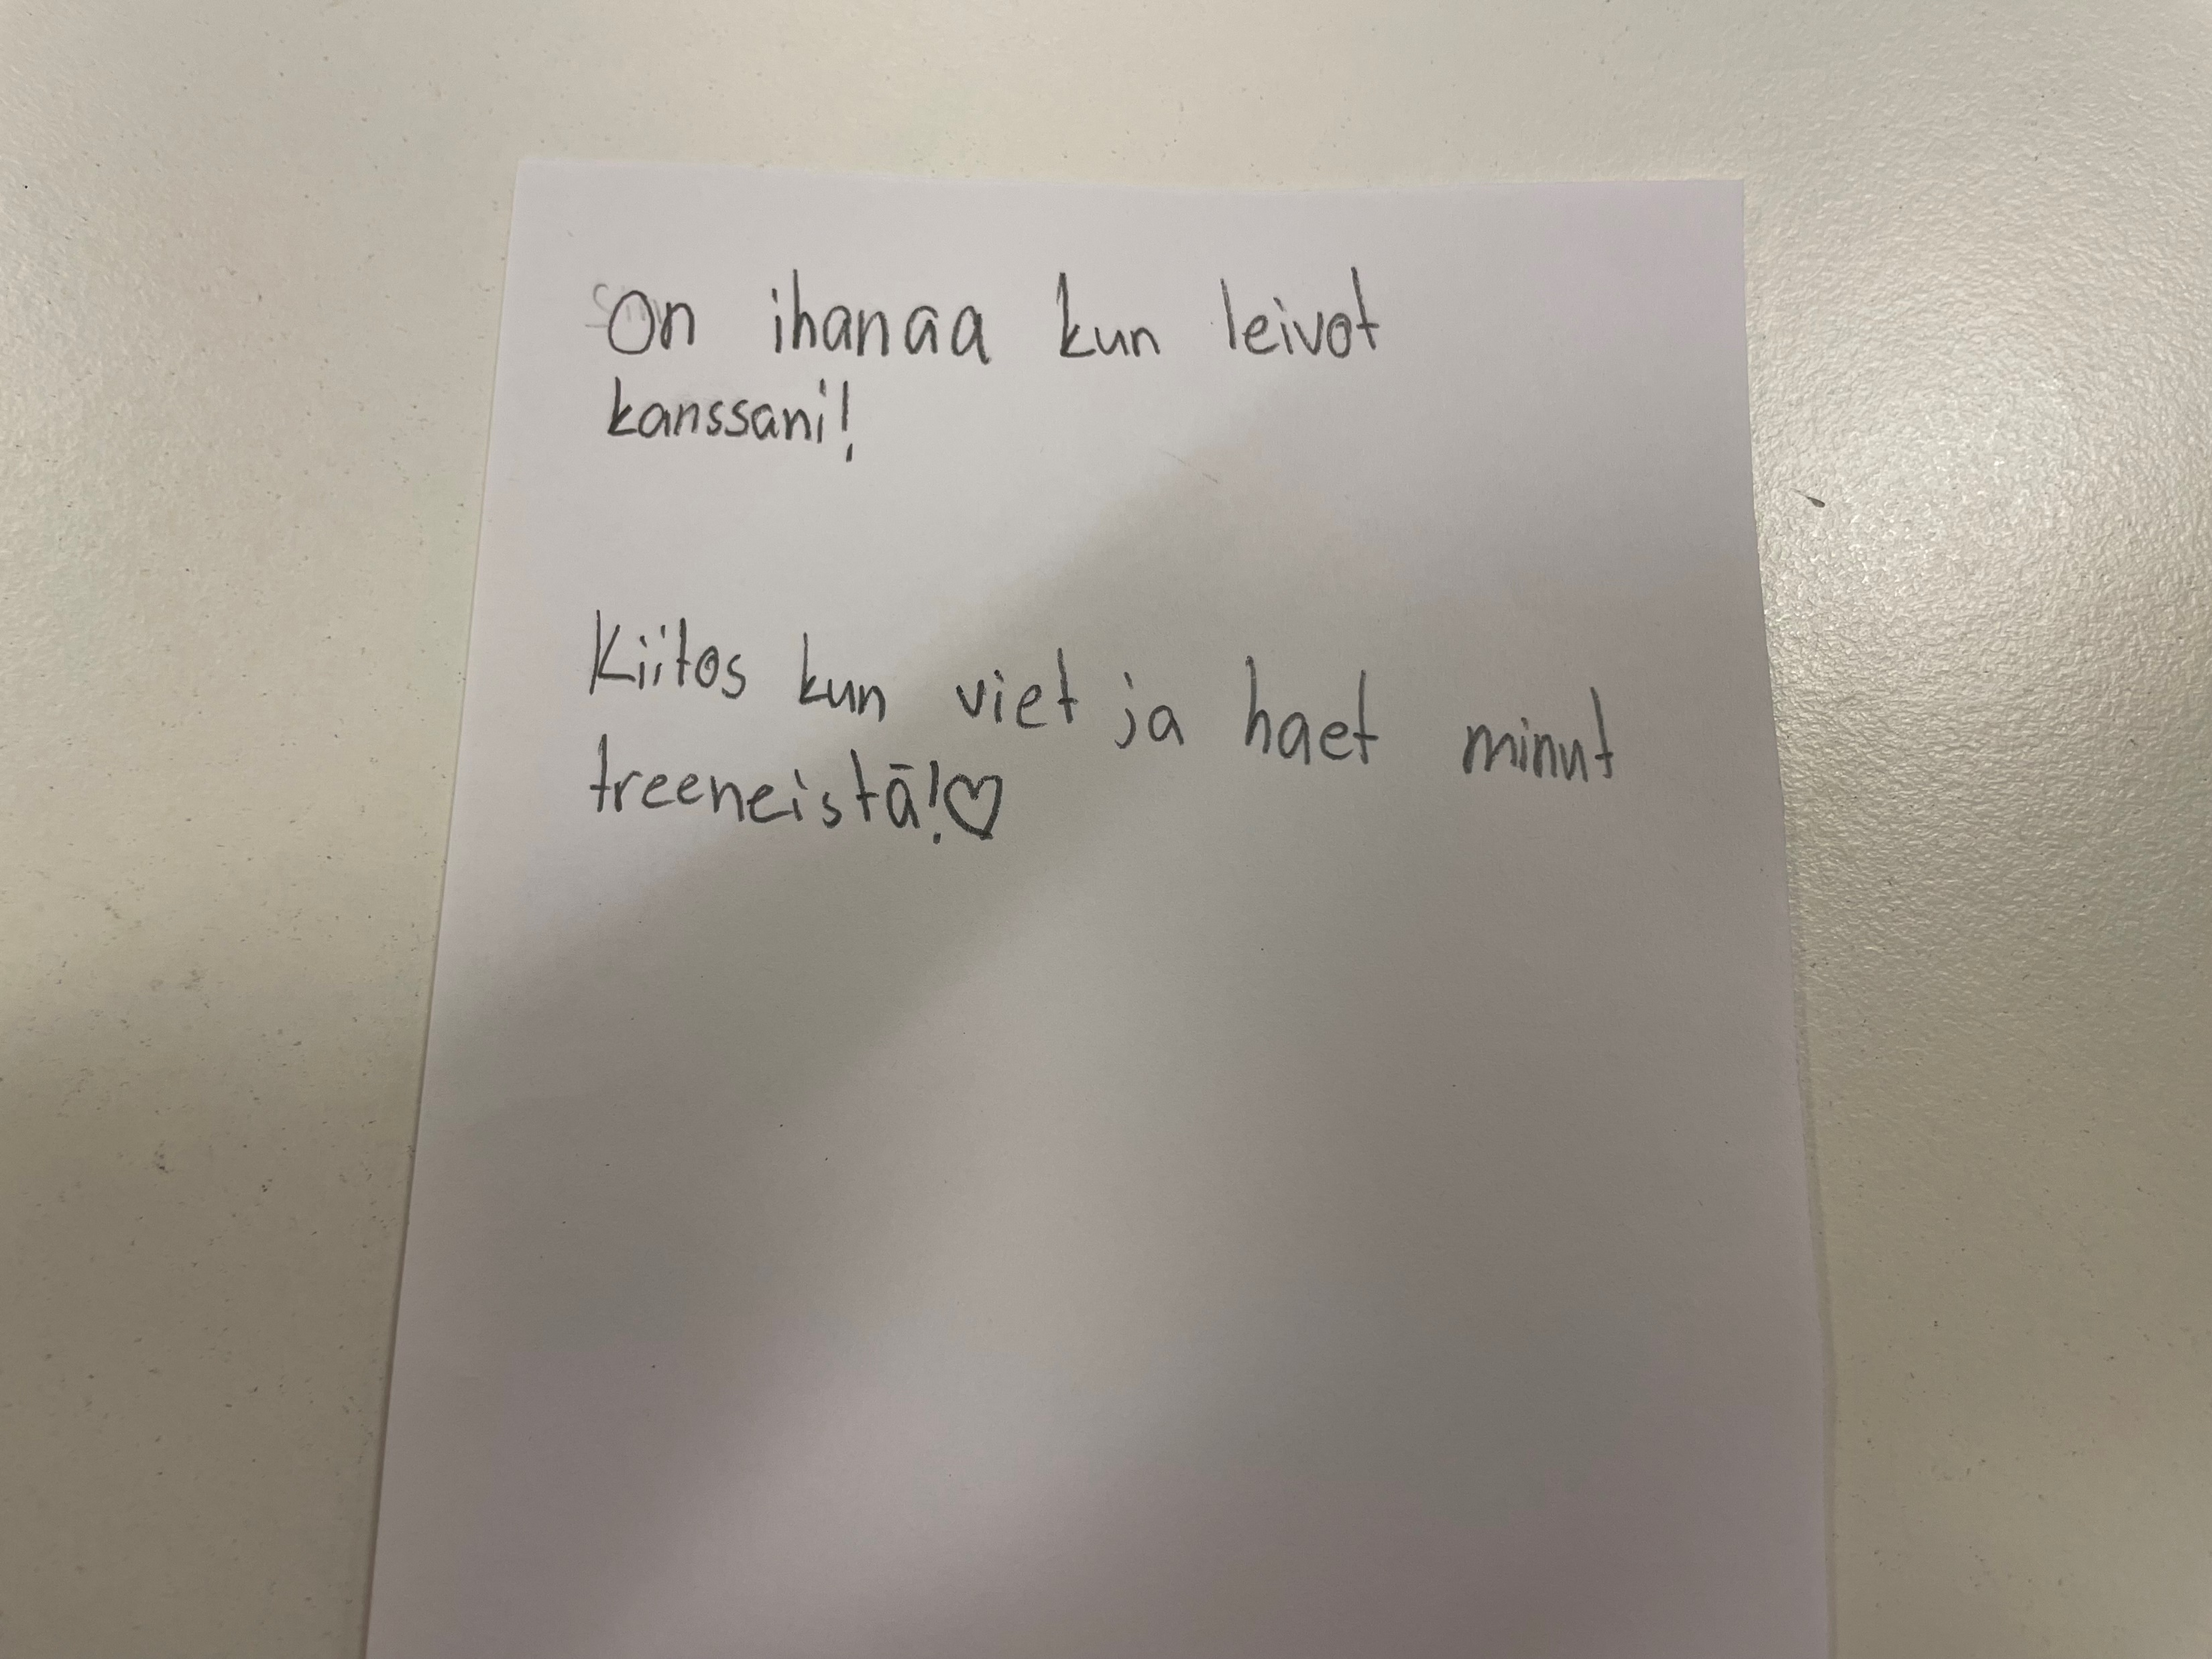 On ihanaa kun leivot
kanssani!
Kiitos kun viet ja haet minut
treeneistä!♡